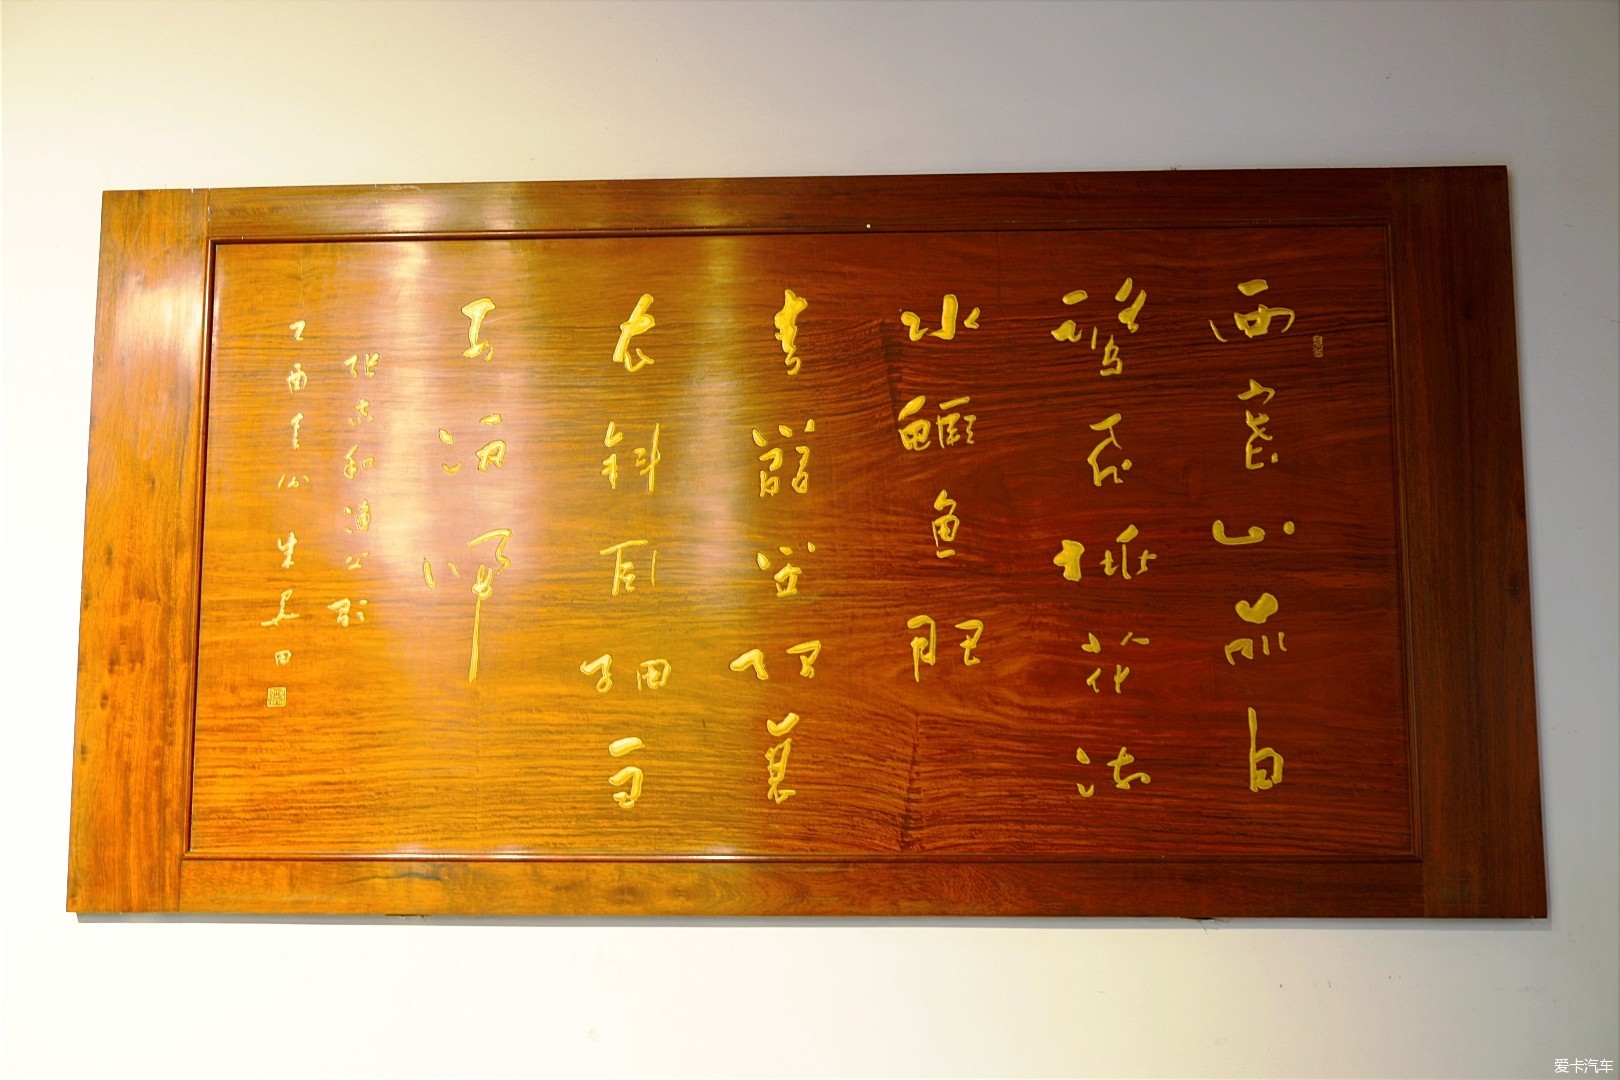 西塞山前白
鹭飞桃花流
水鳜鱼肥
青箬笠绿蓑
衣斜风细雨
不须归
张志和渔父
乙酉 朱关田
爱卡汽车